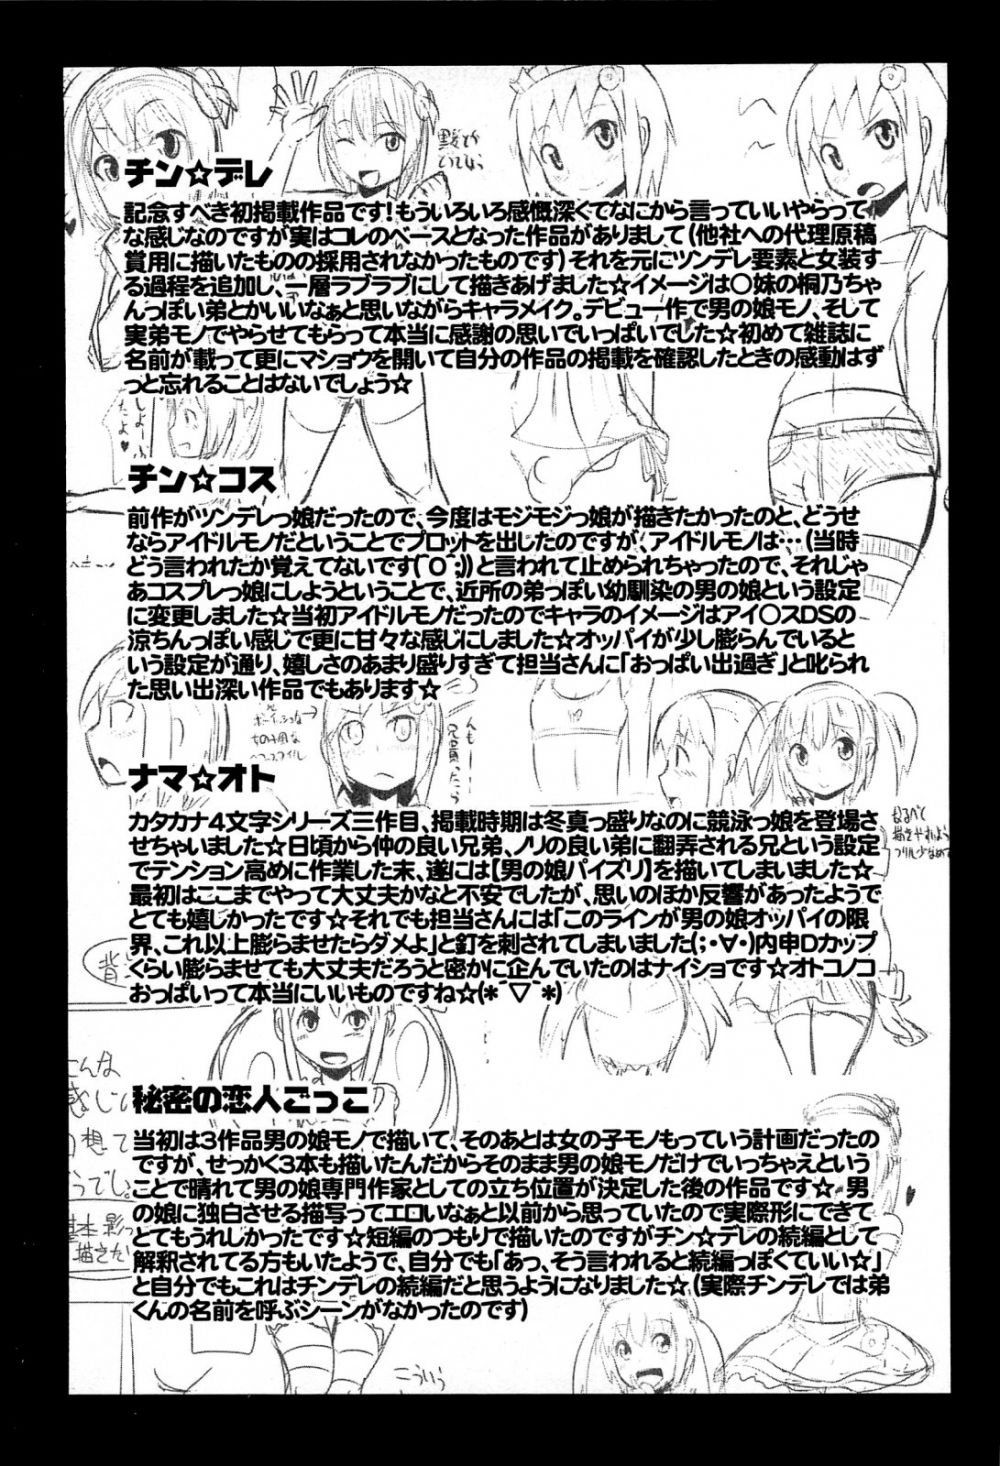 チン☆デレ
記念すべき初掲載作品です!もういろいろ感慨深くてなにから言っていいやらって
な感じなのですが実はコレのベースとなった作品がありまして(他社への代理原稿
賞用に描いたものの採用されなかったものです)それを元にツンデレ要素と女装す
る過程を追加し、一層ラブラブにして描きあげました☆イメージは〇妹の桐乃ちゃ
んっぽい弟とかいいなぁと思いながらキャラメイク。デビュー作で男の娘モノ、そして
実弟モノでやらせてもらって本当に感謝の思いでいっぱいでした☆初めて雑誌に
名前が載って更にマショウを開いて自分の作品の掲載を確認したときの感動はず
っと忘れることはないでしょう☆
チン☆コス
前作がツンデレっ娘だったので、今度はモジモジっ娘が描きたかったのと、どうせ
ならアイドルモノだということでプロットを出したのですが、アイドルモノは…(当時
どう言われたか覚えてないです(´O`;))と言われて止められちゃったので、それじゃ
あコスプレっ娘にしようということで、近所の弟っぽい幼馴染の男の娘という設定
に変更しました☆当初アイドルモノだったのでキャラのイメージはアイ〇スDSの
涼ちんっぽい感じで更に甘々な感じにしました☆オッパイが少し膨らんでいると
いう設定が通り、嬉しさのあまり盛りすぎて担当さんに「おっぱい出過ぎ」と叱られ
た思い出深い作品でもあります☆
ナマ☆オト
カタカナ4文字シリーズ三作目、掲載時期は冬真っ盛りなのに競泳っ娘を登場さ
せちゃいました☆日頃から仲の良い兄弟、ノリの良い弟に翻弄される兄という設定
でテンション高めに作業した末、遂には【男の娘パイズリ】を描いてしまいました☆
最初はここまでやって大丈夫かなと不安でしたが、思いのほか反響があったようで
とても嬉しかったです☆それでも担当さんには「このラインが男の娘オッパイの限
界、これ以上膨らませたらダメよ」と釘を刺されてしまいました(;・∀・)内申Dカップ
くらい膨らませても大丈夫だろうと密かに企んでいたのはナイショです☆オトコノコ
おっぱいって本当にいいものですね☆(*´▽`*)
秘密の恋人ごっこ
当初は3作品男の娘モノで描いて、そのあとは女の子モノもっていう計画だったの
ですが、せっかく3本も描いたんだからそのまま男の娘モノだけでいっちゃえという
ことで晴れて男の娘専門作家としての立ち位置が決定した後の作品です☆ 男
の娘に独白させる描写ってエロいなぁと以前から思っていたので実際形にできて
とてもうれしかったです☆短編のつもりで描いたのですがチン☆デレの続編として
解釈されてる方もいたようで、自分でも「あっ、そう言われると続編っぽくていい☆」
と自分でもこれはチンデレの続編だと思うようになりました☆(実際チンデレでは弟
くんの名前を呼ぶシーンがなかったのです)
こういう